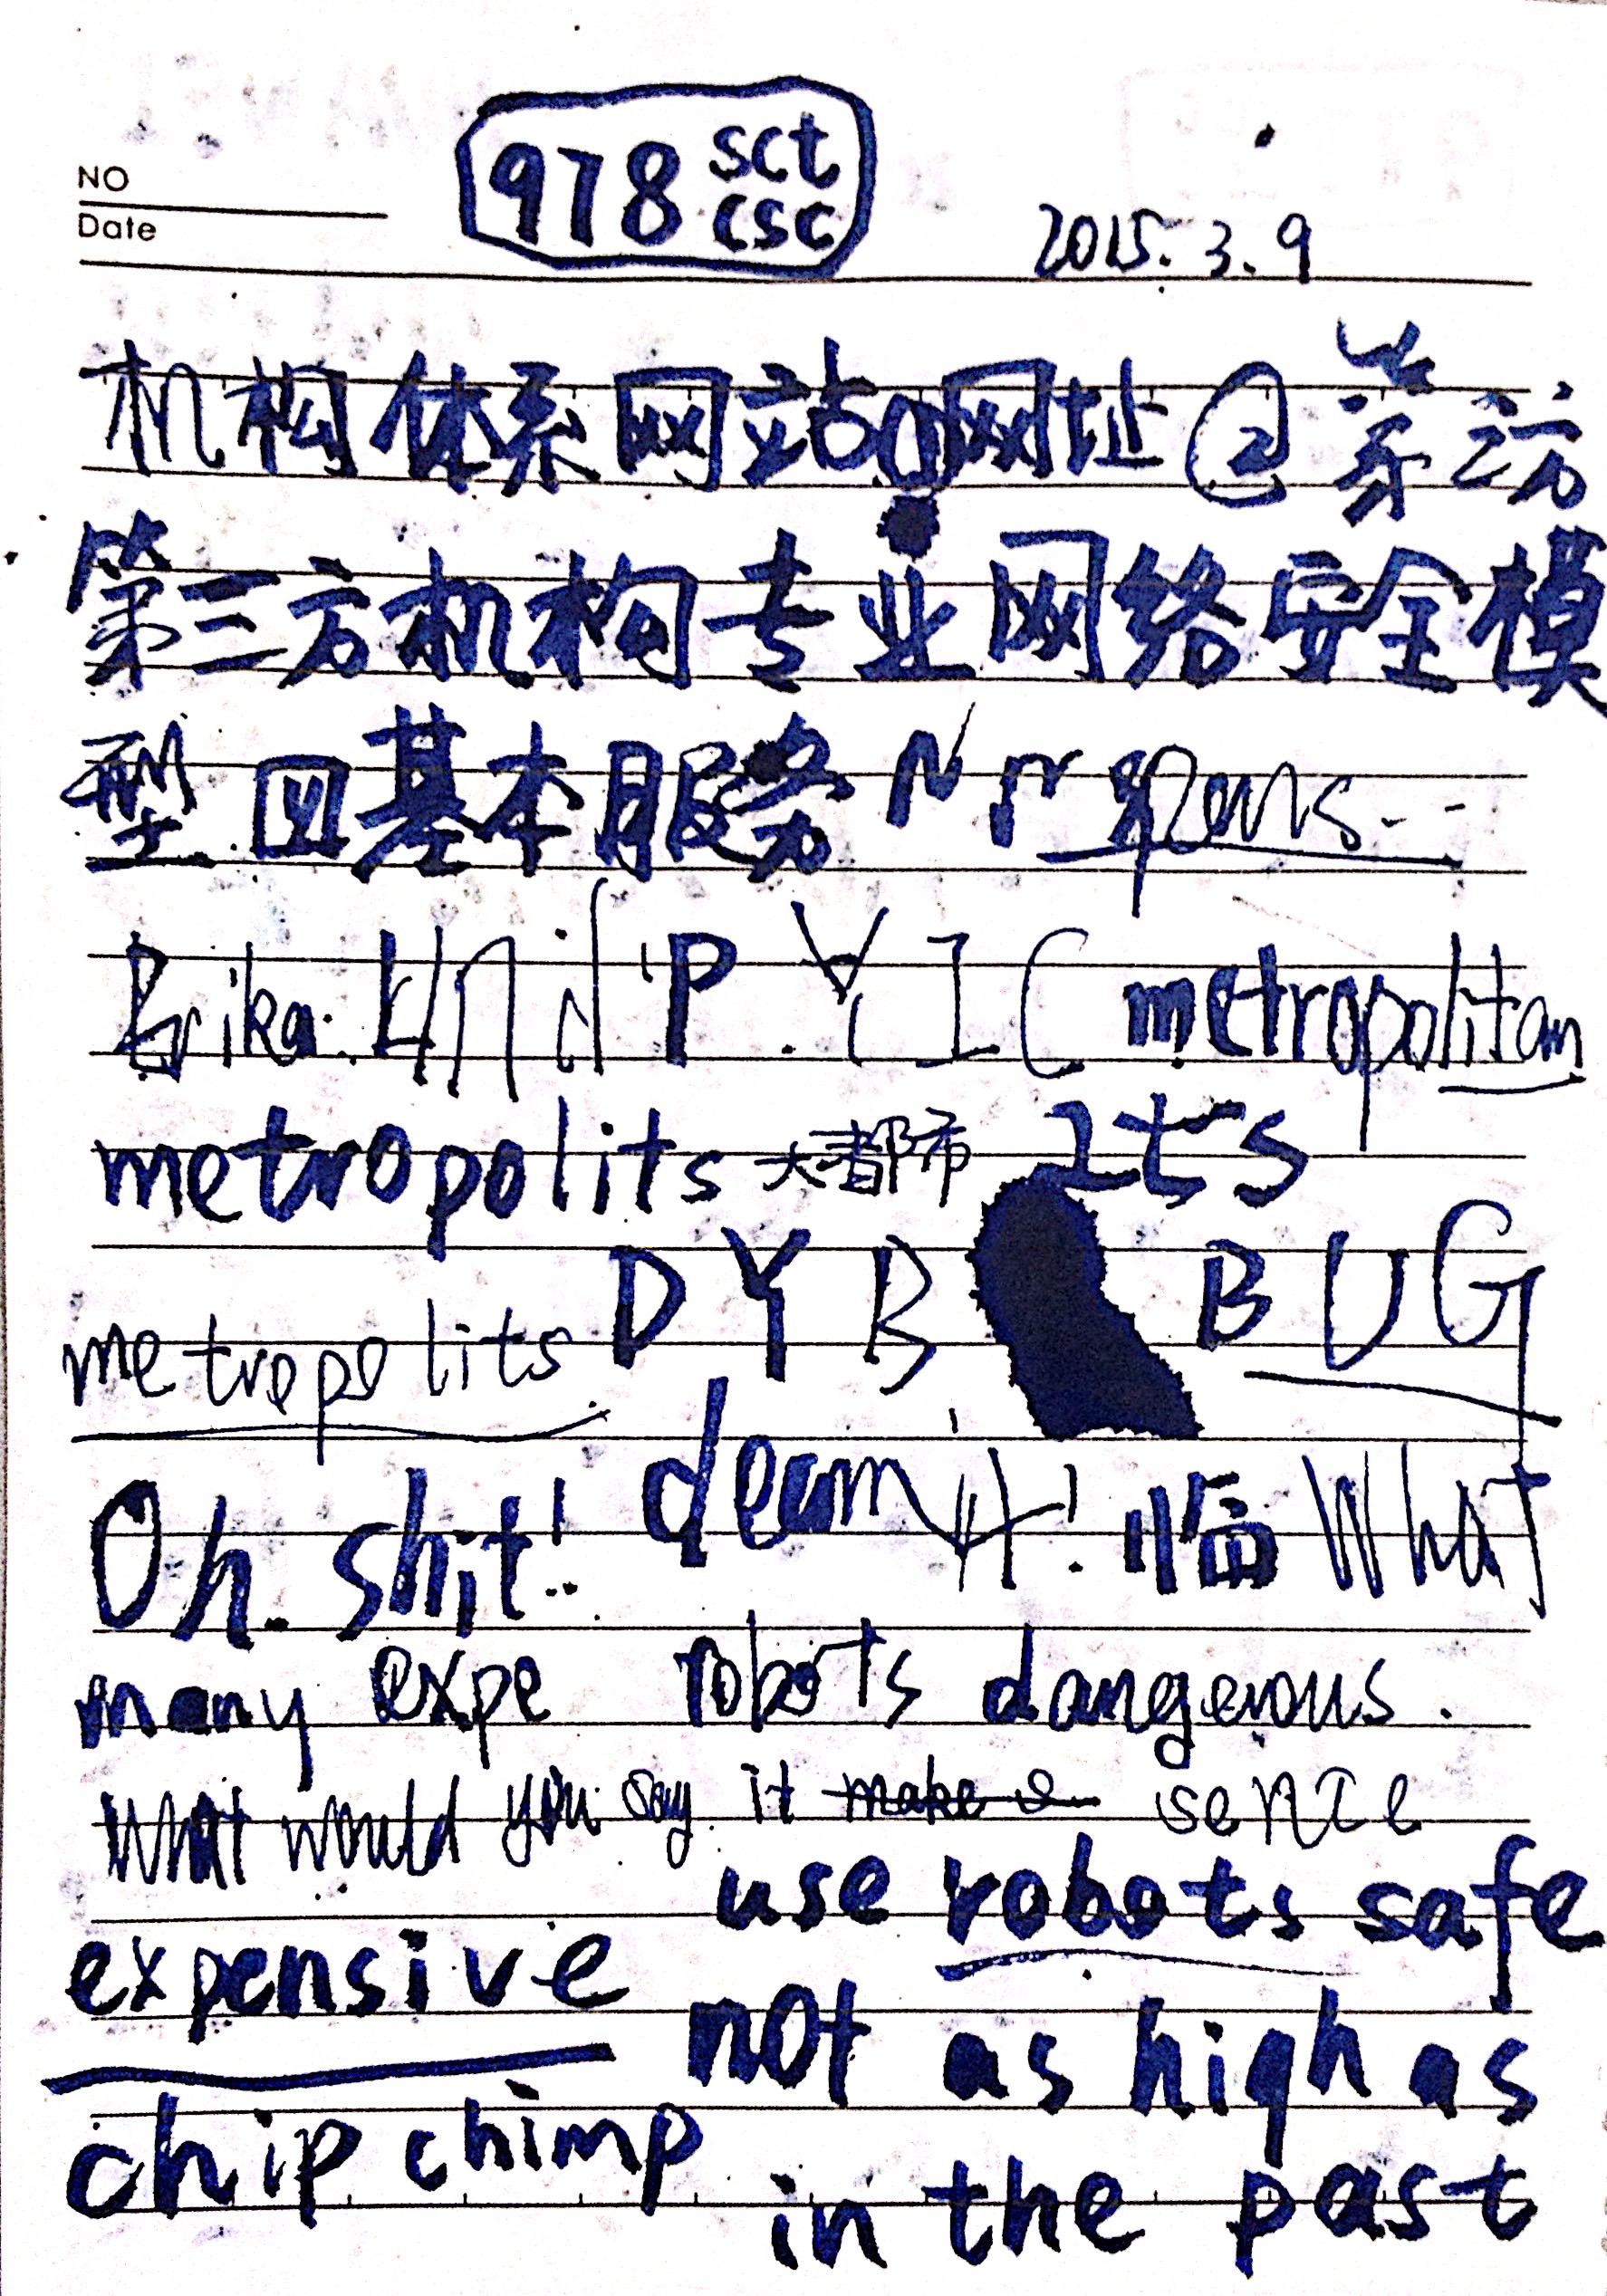 978 sct csc
NO
Date
2015.3.9
机构体系网站的网址@茅访
第三方机构专业网络安全模
型 四基本服务 N r
Brika. P. Y I C metropolitan
metropolits 大都市
D Y B B U G
metropolits
Oh. shit! deam it! 临 What
many expe robots dangerous.
What would you say it make s sence
use robots safe
expensive
not as high as
chip chimp
in the past